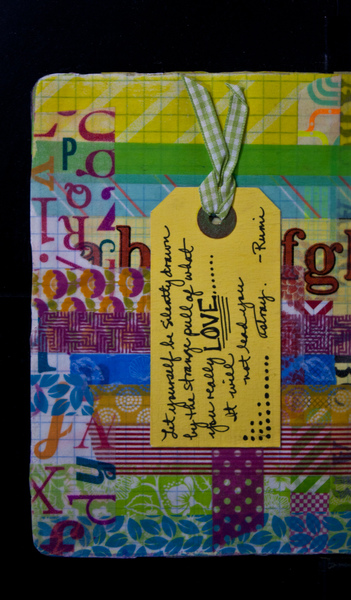 Let yourself be silently drawn
by the strange pull of what
you really LOVE........
It will
not lead you
astray. -Rumi
p
b
fg